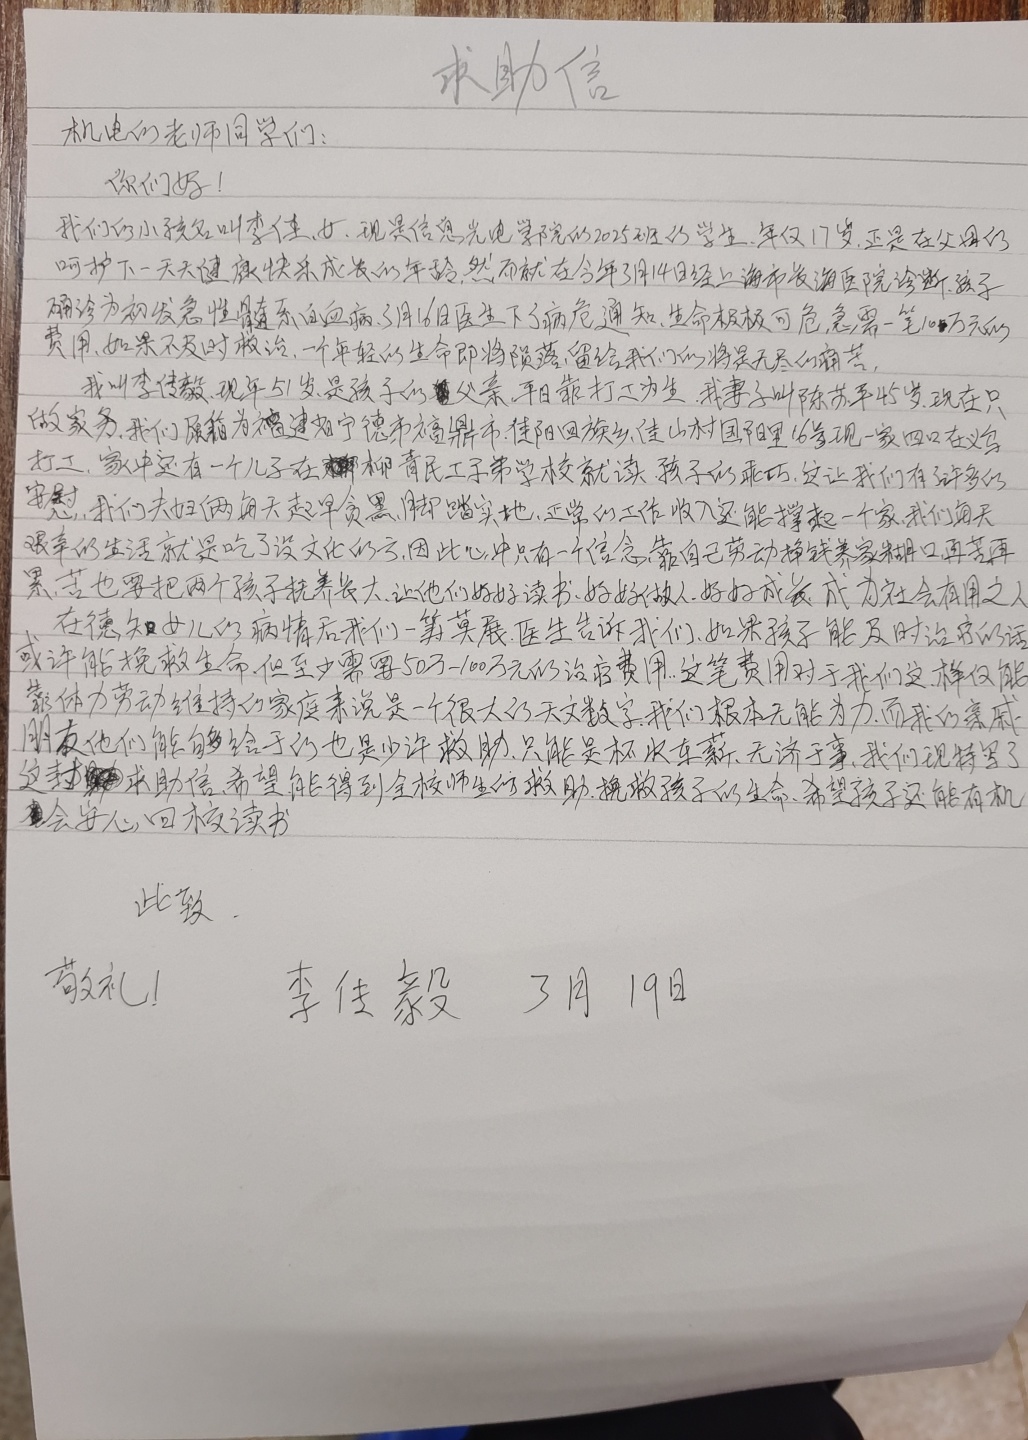 求助信
机电的老师同学们：
你们好！
我们的小孩名叫李佳，女，现是信息光电学院的2025班的学生，年仅17岁，正是在父母的
呵护下一天天健康快乐成长的年龄，然而就在今年3月14日经上海市长海医院诊断，孩子
确诊为初发急性髓系白血病，3月16日医生下了病危通知，生命极极可危，急需一笔100万元的
费用，如果不及时救治，一个年轻的生命即将陨落，留给我们的将是无尽的痛苦，
我叫李佳毅，现年51岁，是孩子的父亲，平日靠打工为生，我妻子叫陈苏平45岁，现在只
做家务，我们原籍为福建省宁德市福鼎市，佳阳回族乡，佳山村国阳里16号现一家四口在义乌
打工，家中还有一个儿子在柳青民工子弟学校就读，孩子们的乖巧，这让我们有了许多的
安慰，我们夫妇俩每天起早贪黑，脚踏实地，正常的工作收入还能撑起一个家，我们每天
艰辛的生活就是吃了没文化的亏，因此心中只有一个信念，靠自己劳动挣钱养家糊口，再苦再
累，苦也要把两个孩子抚养长大，让他们好好读书，好好做人，好好成长，成为社会有用之人
在德知女儿的病情后我们一筹莫展，医生告诉我们，如果孩子能及时治疗的话
或许能挽救生命，但至少需要50万-100万元的治疗费用，这笔费用对于我们这样仅能
靠体力劳动维持的家庭来说是一个很大的天文数字，我们根本无能为力，而我的亲戚
朋友他们能够给于的也是少许救助，只能是杯水车薪，无济于事，我们现特写了
这封求助信，希望能得到全校师生的救助，挽救孩子的生命，希望孩子还能有机
会安心回校读书
此致．
敬礼！ 李佳毅 3月19日